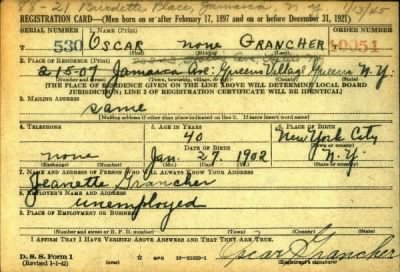 88-21 Burdette Place, Jamaica, N.Y. 1/3/45
REGISTRATION CARD—(Men born on or after February 17, 1897 and on or before December 31, 1921)
530 OSCAR none GRANCHER 10051
(First) (Middle) (Last)
2. PLACE OF RESIDENCE (Print)
215-07 Jamaica Ave: Queens Village Queens N.Y.
(Number and street) (Town, township, village, or city) (County) (State)
[THE PLACE OF RESIDENCE GIVEN ON THE LINE ABOVE WILL DETERMINE LOCAL BOARD
JURISDICTION; LINE 2 OF REGISTRATION CERTIFICATE WILL BE IDENTICAL]
3. MAILING ADDRESS
same
[Mailing address if other than place indicated on line 2. If same insert word same]
4. TELEPHONE
5. AGE IN YEARS
40
6. PLACE OF BIRTH
New York City
(Town or county)
none
DATE OF BIRTH
Jan. 27. 1902
N.Y.
(Exchange) (Number) (Mo.) (Day) (Yr.) (State or country)
7. NAME AND ADDRESS OF PERSON WHO WILL ALWAYS KNOW YOUR ADDRESS
Jeanette Grancher
8. EMPLOYER'S NAME AND ADDRESS
unemployed
9. PLACE OF EMPLOYMENT OR BUSINESS
(Number and street or R. F. D. number) (Town) (County) (State)
I AFFIRM THAT I HAVE VERIFIED ABOVE ANSWERS AND THAT THEY ARE TRUE.
D. S. S. Form 1
(Revised 1-1-42)
(over)
Oscar Grancher
(Registrant's signature)